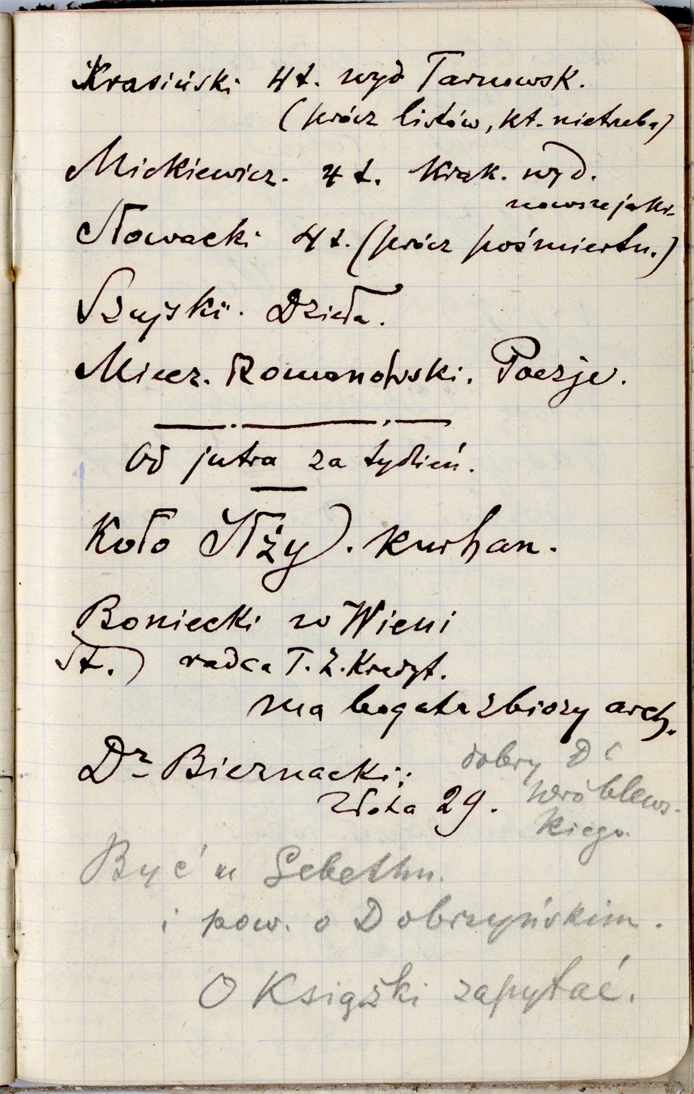 Krasiński 4 t. wyd Tarnowsk.
(prócz listów, kt. nietrzeba)
Mickiewicz. 4 t. Krak. wyd.
nowsze jakie
Słowacki 4 t. (prócz pośmiertn.)
Szujski. Dzieła.
Miecz. Romanowski. Poezje.
Od jutra za tydzień.
Koło Iłży). kurhan.
Boniecki w Wieni
St.) radca T. Z. Kredyt.
ma bogate zbiory arch.
Dr Biernacki;
Złota 29.
dobry Dr
Wróblews-
kiego.
Być u Gebethn.
i pow. o Dobrzyńskim.
O Książki zapytać.